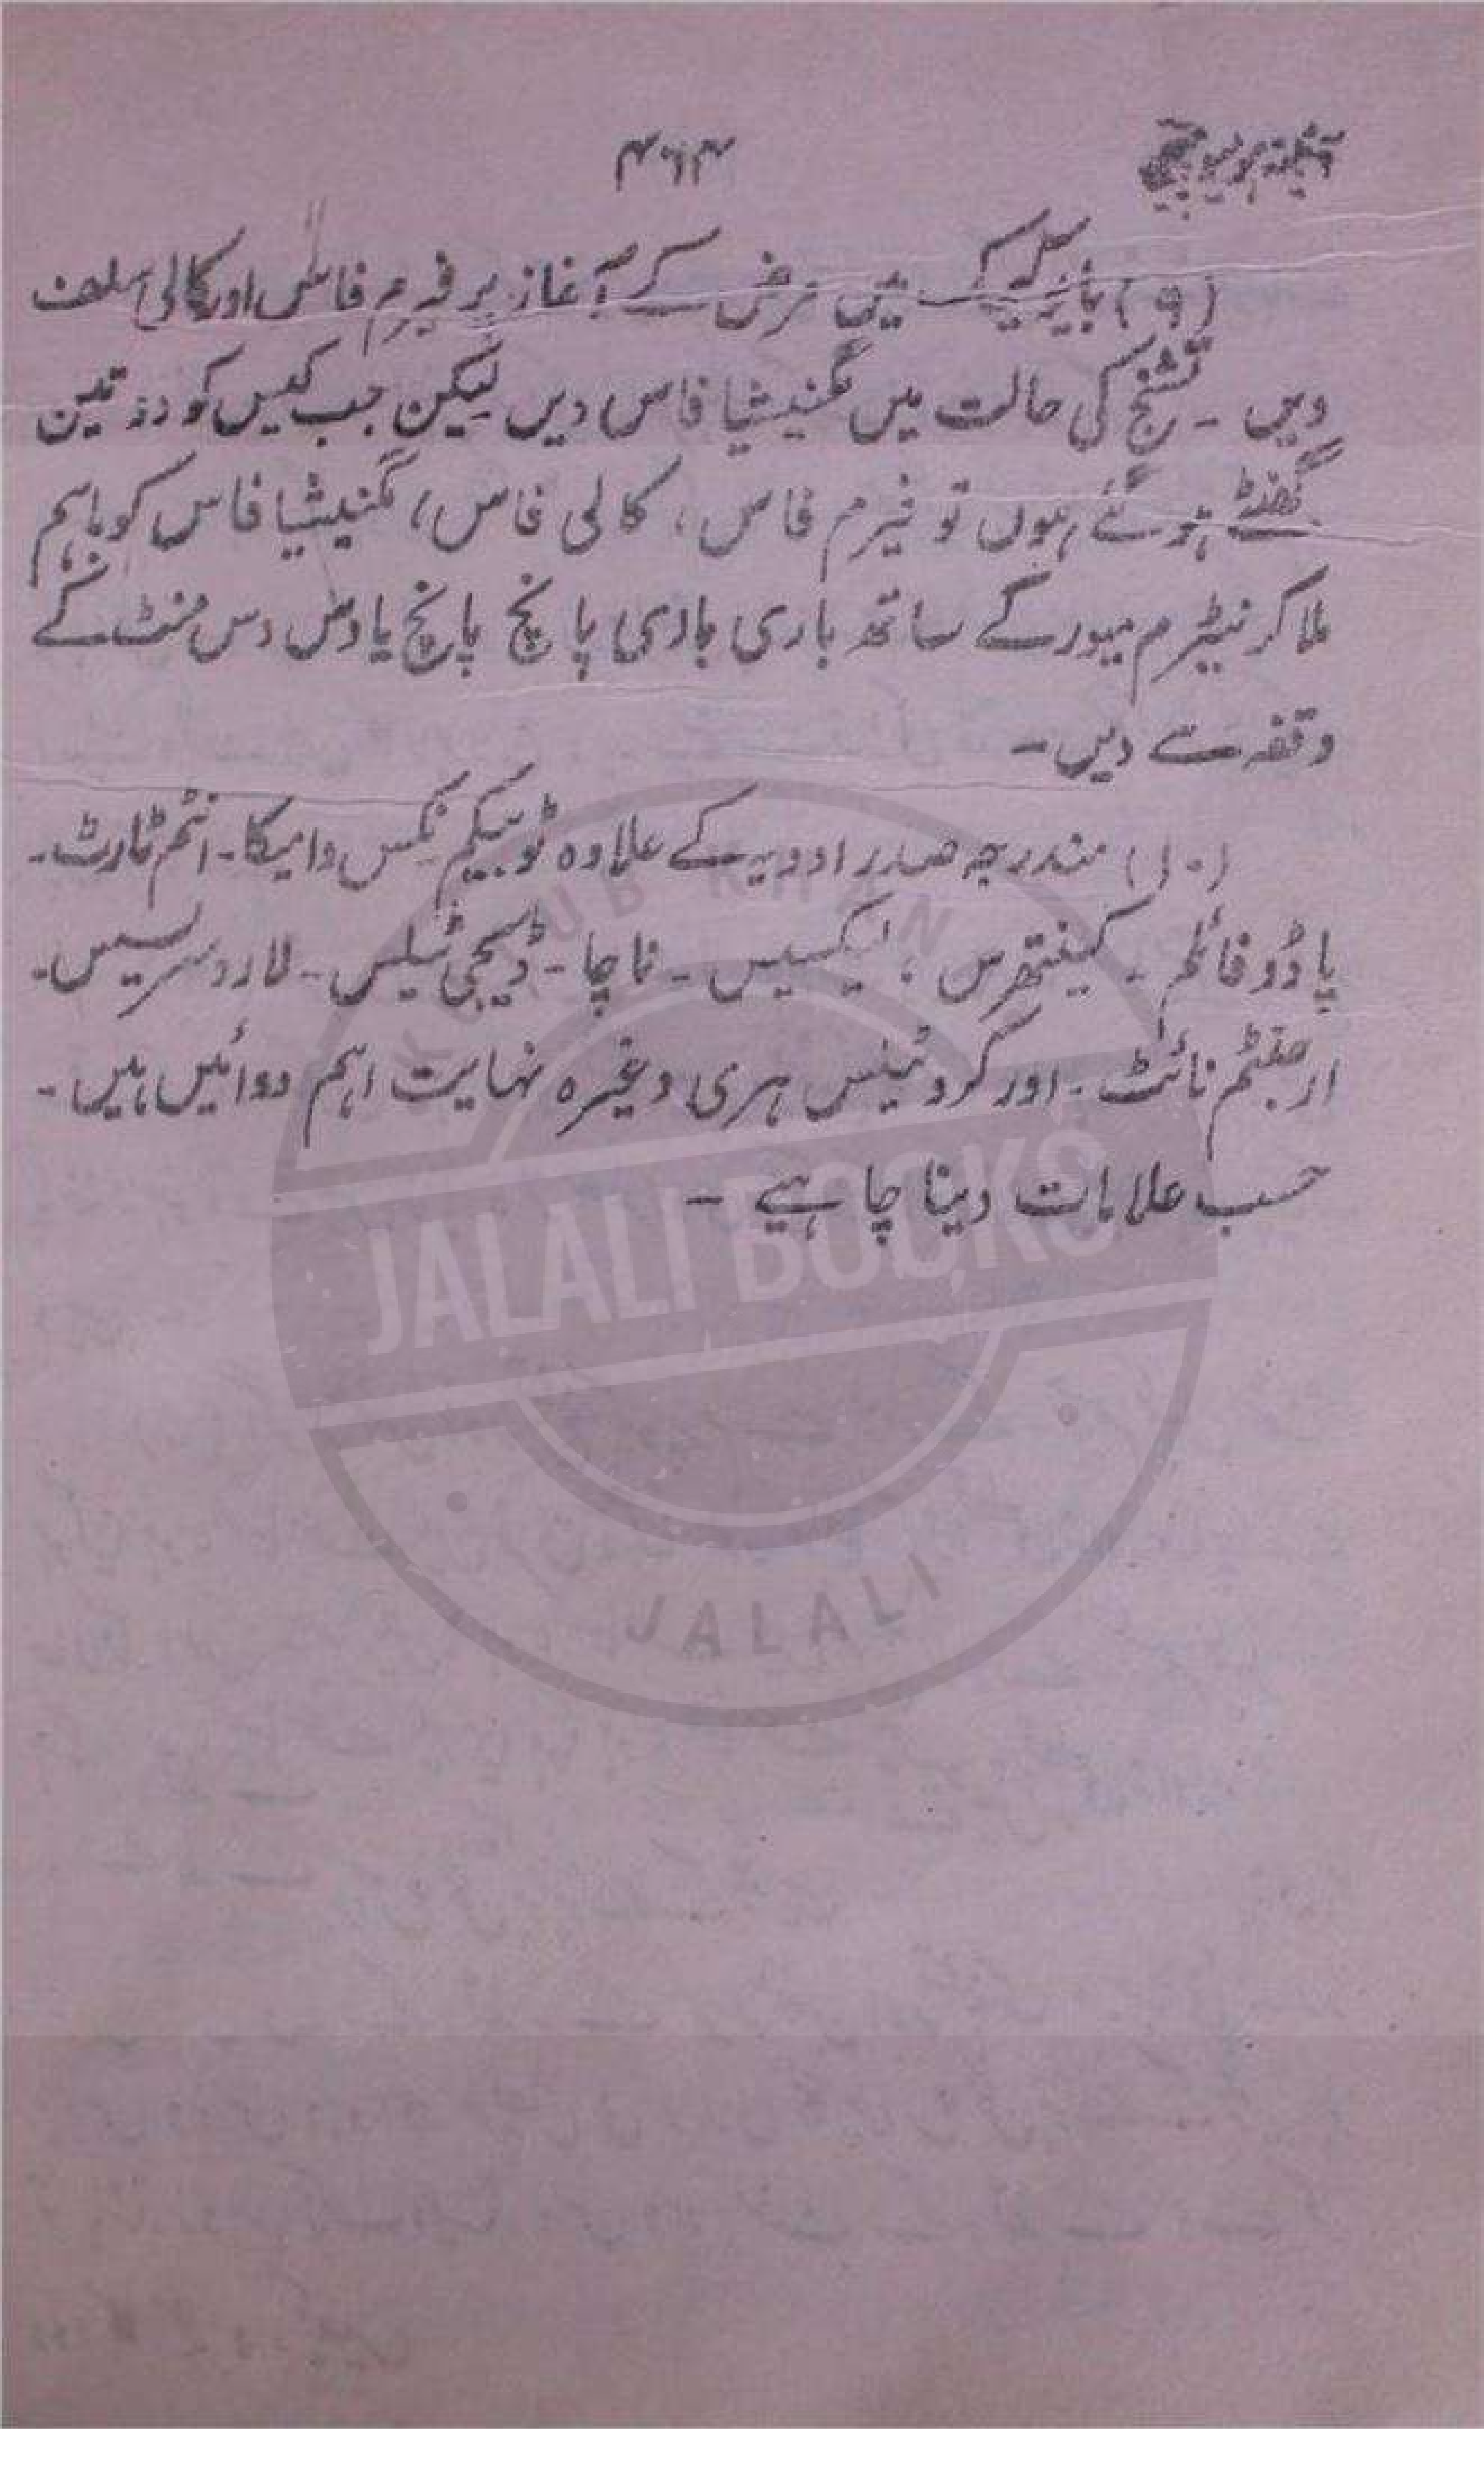 آئینہ ہومیوپیتھی ۴۶۴
(۹) بائیوکیمک میں مرض کے آغاز پر فیرم فاس اور کالی سلف
دیں۔ تشنج کی حالت میں مگنیشیا فاس دیں لیکن جب کیس کو دو تین
گھنٹے ہو گئے ہوں تو فیرم فاس، کالی فاس، مگنیشیا فاس کو باہم
ملا کر نیٹرم میور کے ساتھ باری باری پانچ پانچ یا دس دس منٹ کے
وقفہ سے دیں۔
(۱۰) مندرجہ صدر ادویہ کے علاوہ ٹوبیکم نکس وامیکا۔ انٹم ٹارٹ۔
پاڈوفائلم۔ کینتھرس، لیکسیس۔ ناجا۔ ڈیجی ٹیلس۔ لاروسریسس۔
ارجنٹم نائٹ۔ اور کروٹیلس ہری وغیرہ نہایت اہم دوائیں ہیں۔
حسب علامات دینا چاہیے۔
KHAN
JALALI BOOKS
JALALI